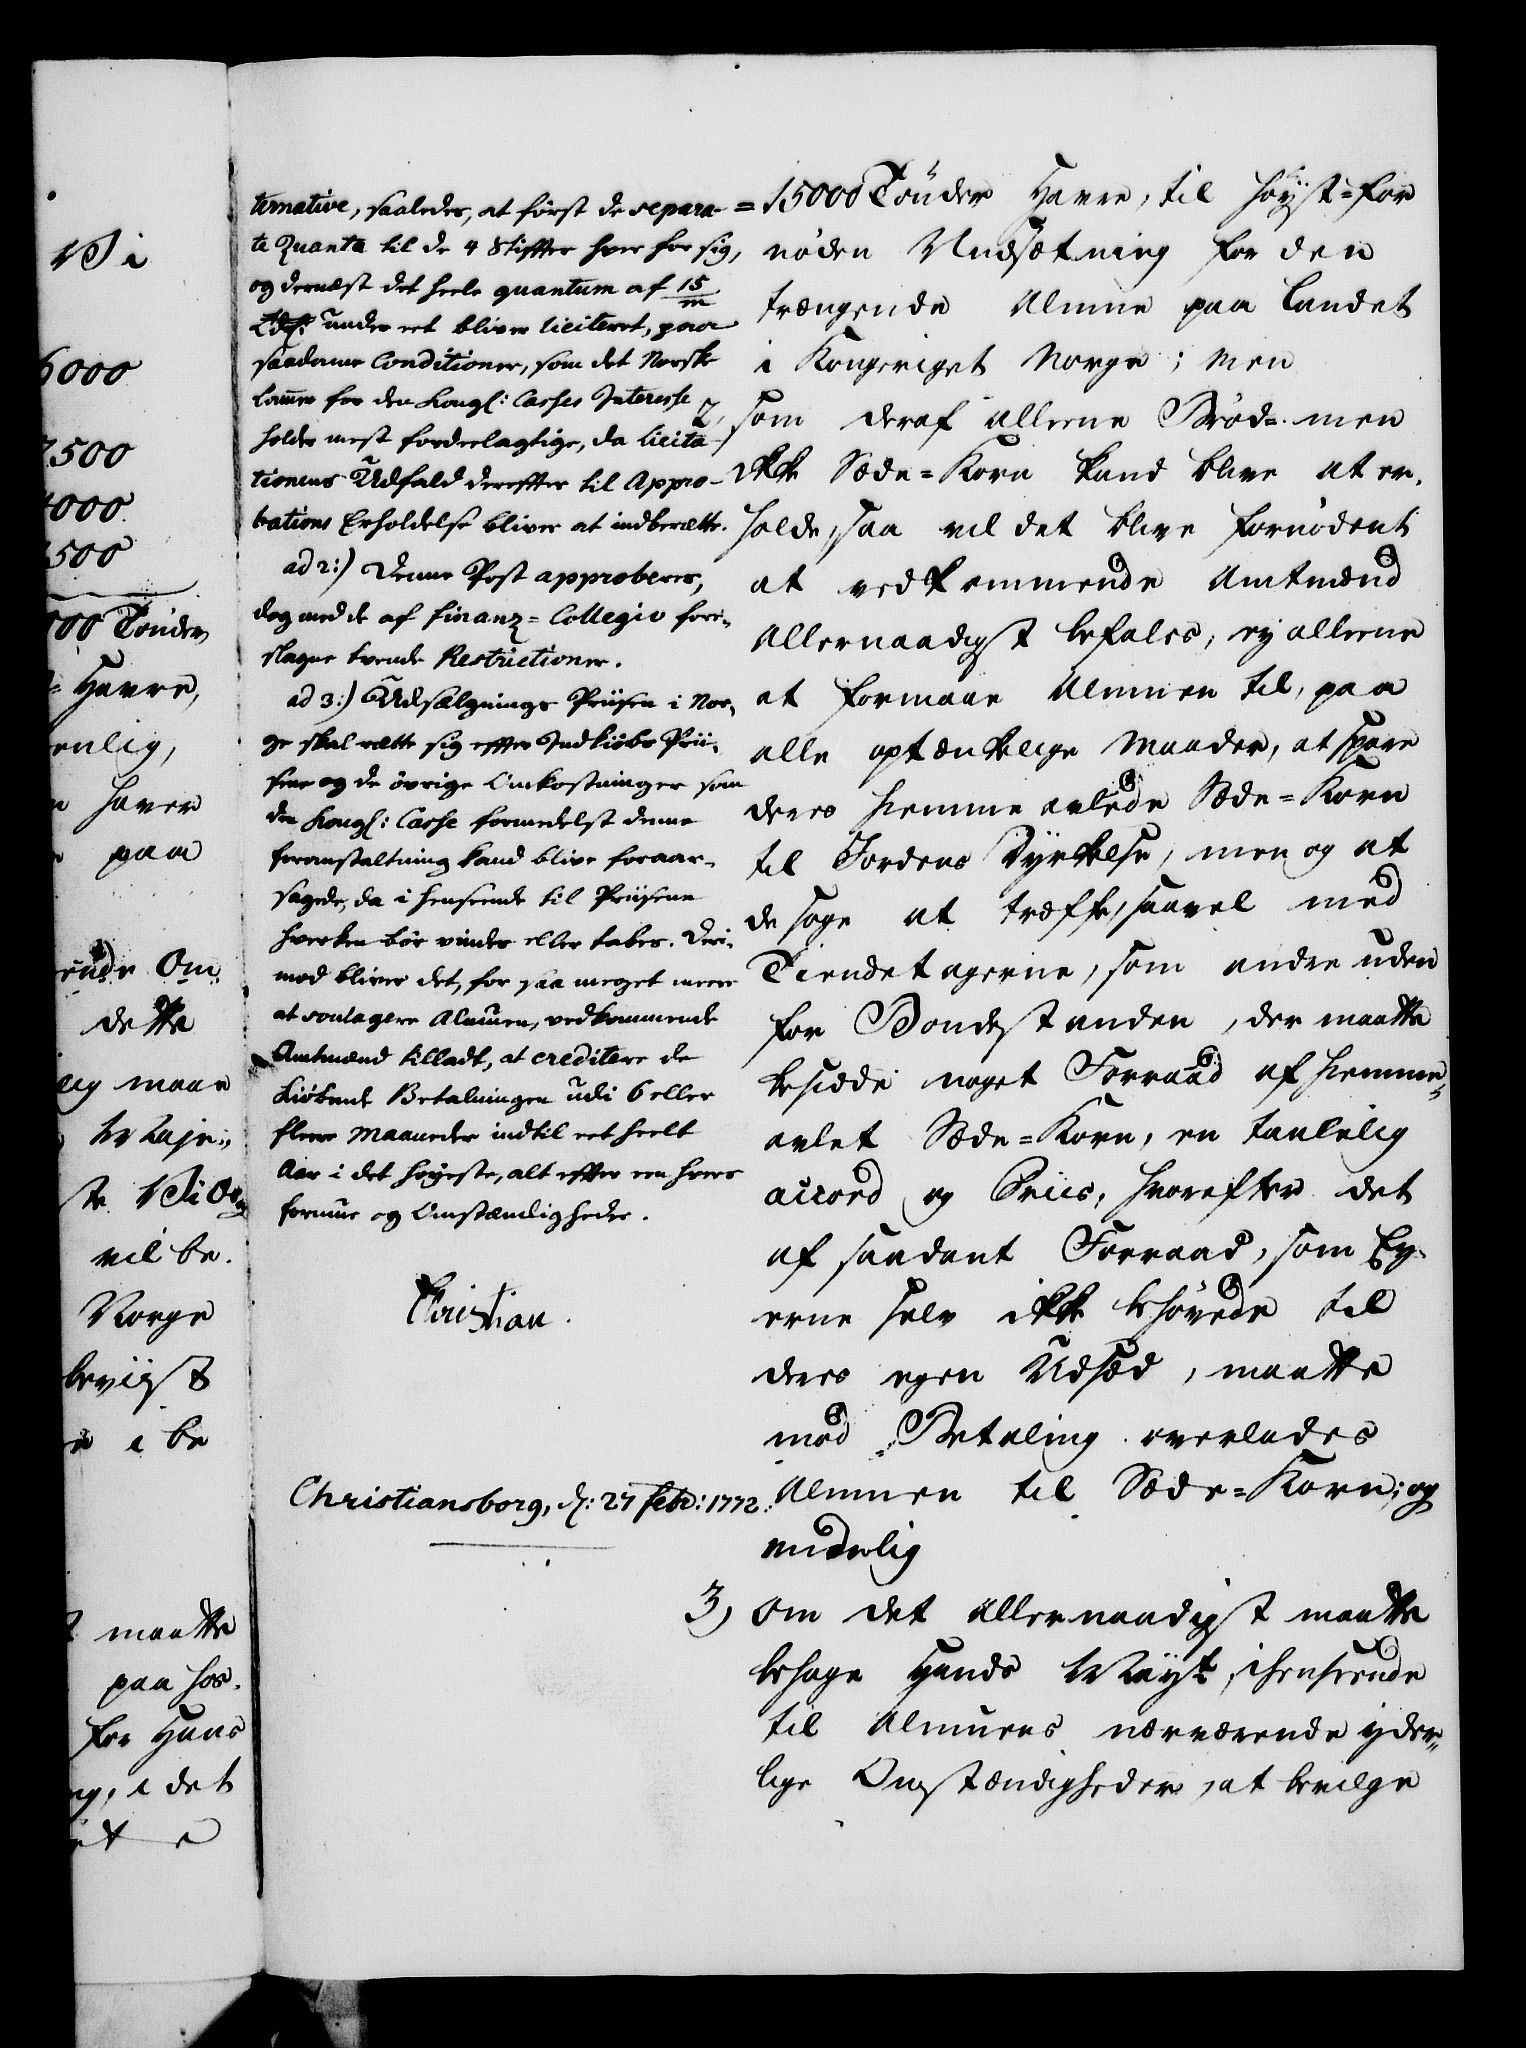 ternative, saaledes, at først de separa-
te Quanta til de 4 Stiffter hver for sig,
og dernæst det heele quantum af 15/m
Tdr: under eet bliver liciteret, paa
saadanne Conditioner, som det Norske
Cammer for den Kongl: Casses Interesse
holder mest fordeelagtige, da licita-
tionens Udfald derefter til Appro-
bations Erholdelse bliver at indberette.
ad 2:) Denne Post approberes,
dog med de af Finanz-Collegio fore-
slagne tvende Restrictioner.
ad 3:) Udsælgnings Priisen i Nor-
ge skal rette sig effter Indkiøbs Prii-
sene og de øvrige Omkostninger som
den Kongl: Casse formedelst denne
foranstaltning kand blive foraar-
saget, da i henseende til Priisene
hverken bør vindes eller tabes. Deri-
mod bliver det, for saa meget meere
at soulagere Almuen, vedkommende
Amtmænd tilladt, at creditere de
Kiøbende Betalningen udi 6 eller
fleere Maaneder indtil eet heelt
Aar i det høyeste, alt effter een hvers
formue og Omstændigheder.
Christian.
Christiansborg, d: 27 Febr: 1772.
= 15000 Tønder Havre, til høyst-for
nøden Undsætning for den
trængende Almue paa Landet
i Kongeriget Norge; Men
2, som deraf alleene Brød- men
ikke Sæde-Korn kand blive at er-
holde, saa vil det blive fornødent
at vedkommende Amtmænd
Allernaadigst befales, ey alleene
at formaae Almuen til, paa
alle optænkelige Maader, at spare
deres hiemme avlede Sæde-Korn
til Jordens Dyrkelse, men og at
de søge at træffe, saavel med
Tiendetagerne, som andre uden
for Bondestanden, der maatte
besidde noget Forraad af hiemme-
avlet Sæde-Korn, en taalelig
accord og Priis, hvorefter det
af saadant Forraad, som Ey-
erne selv ikke behøvede til
deres egen Udsæd, maatte
mod Betaling overlades
Almuen til Sæde-Korn; og
endelig
3, Om det allernaadigst maatte
behage Hands Mayt, i henseende
til Almuens nærværende yder-
lige Omstændigheder, at bevilge